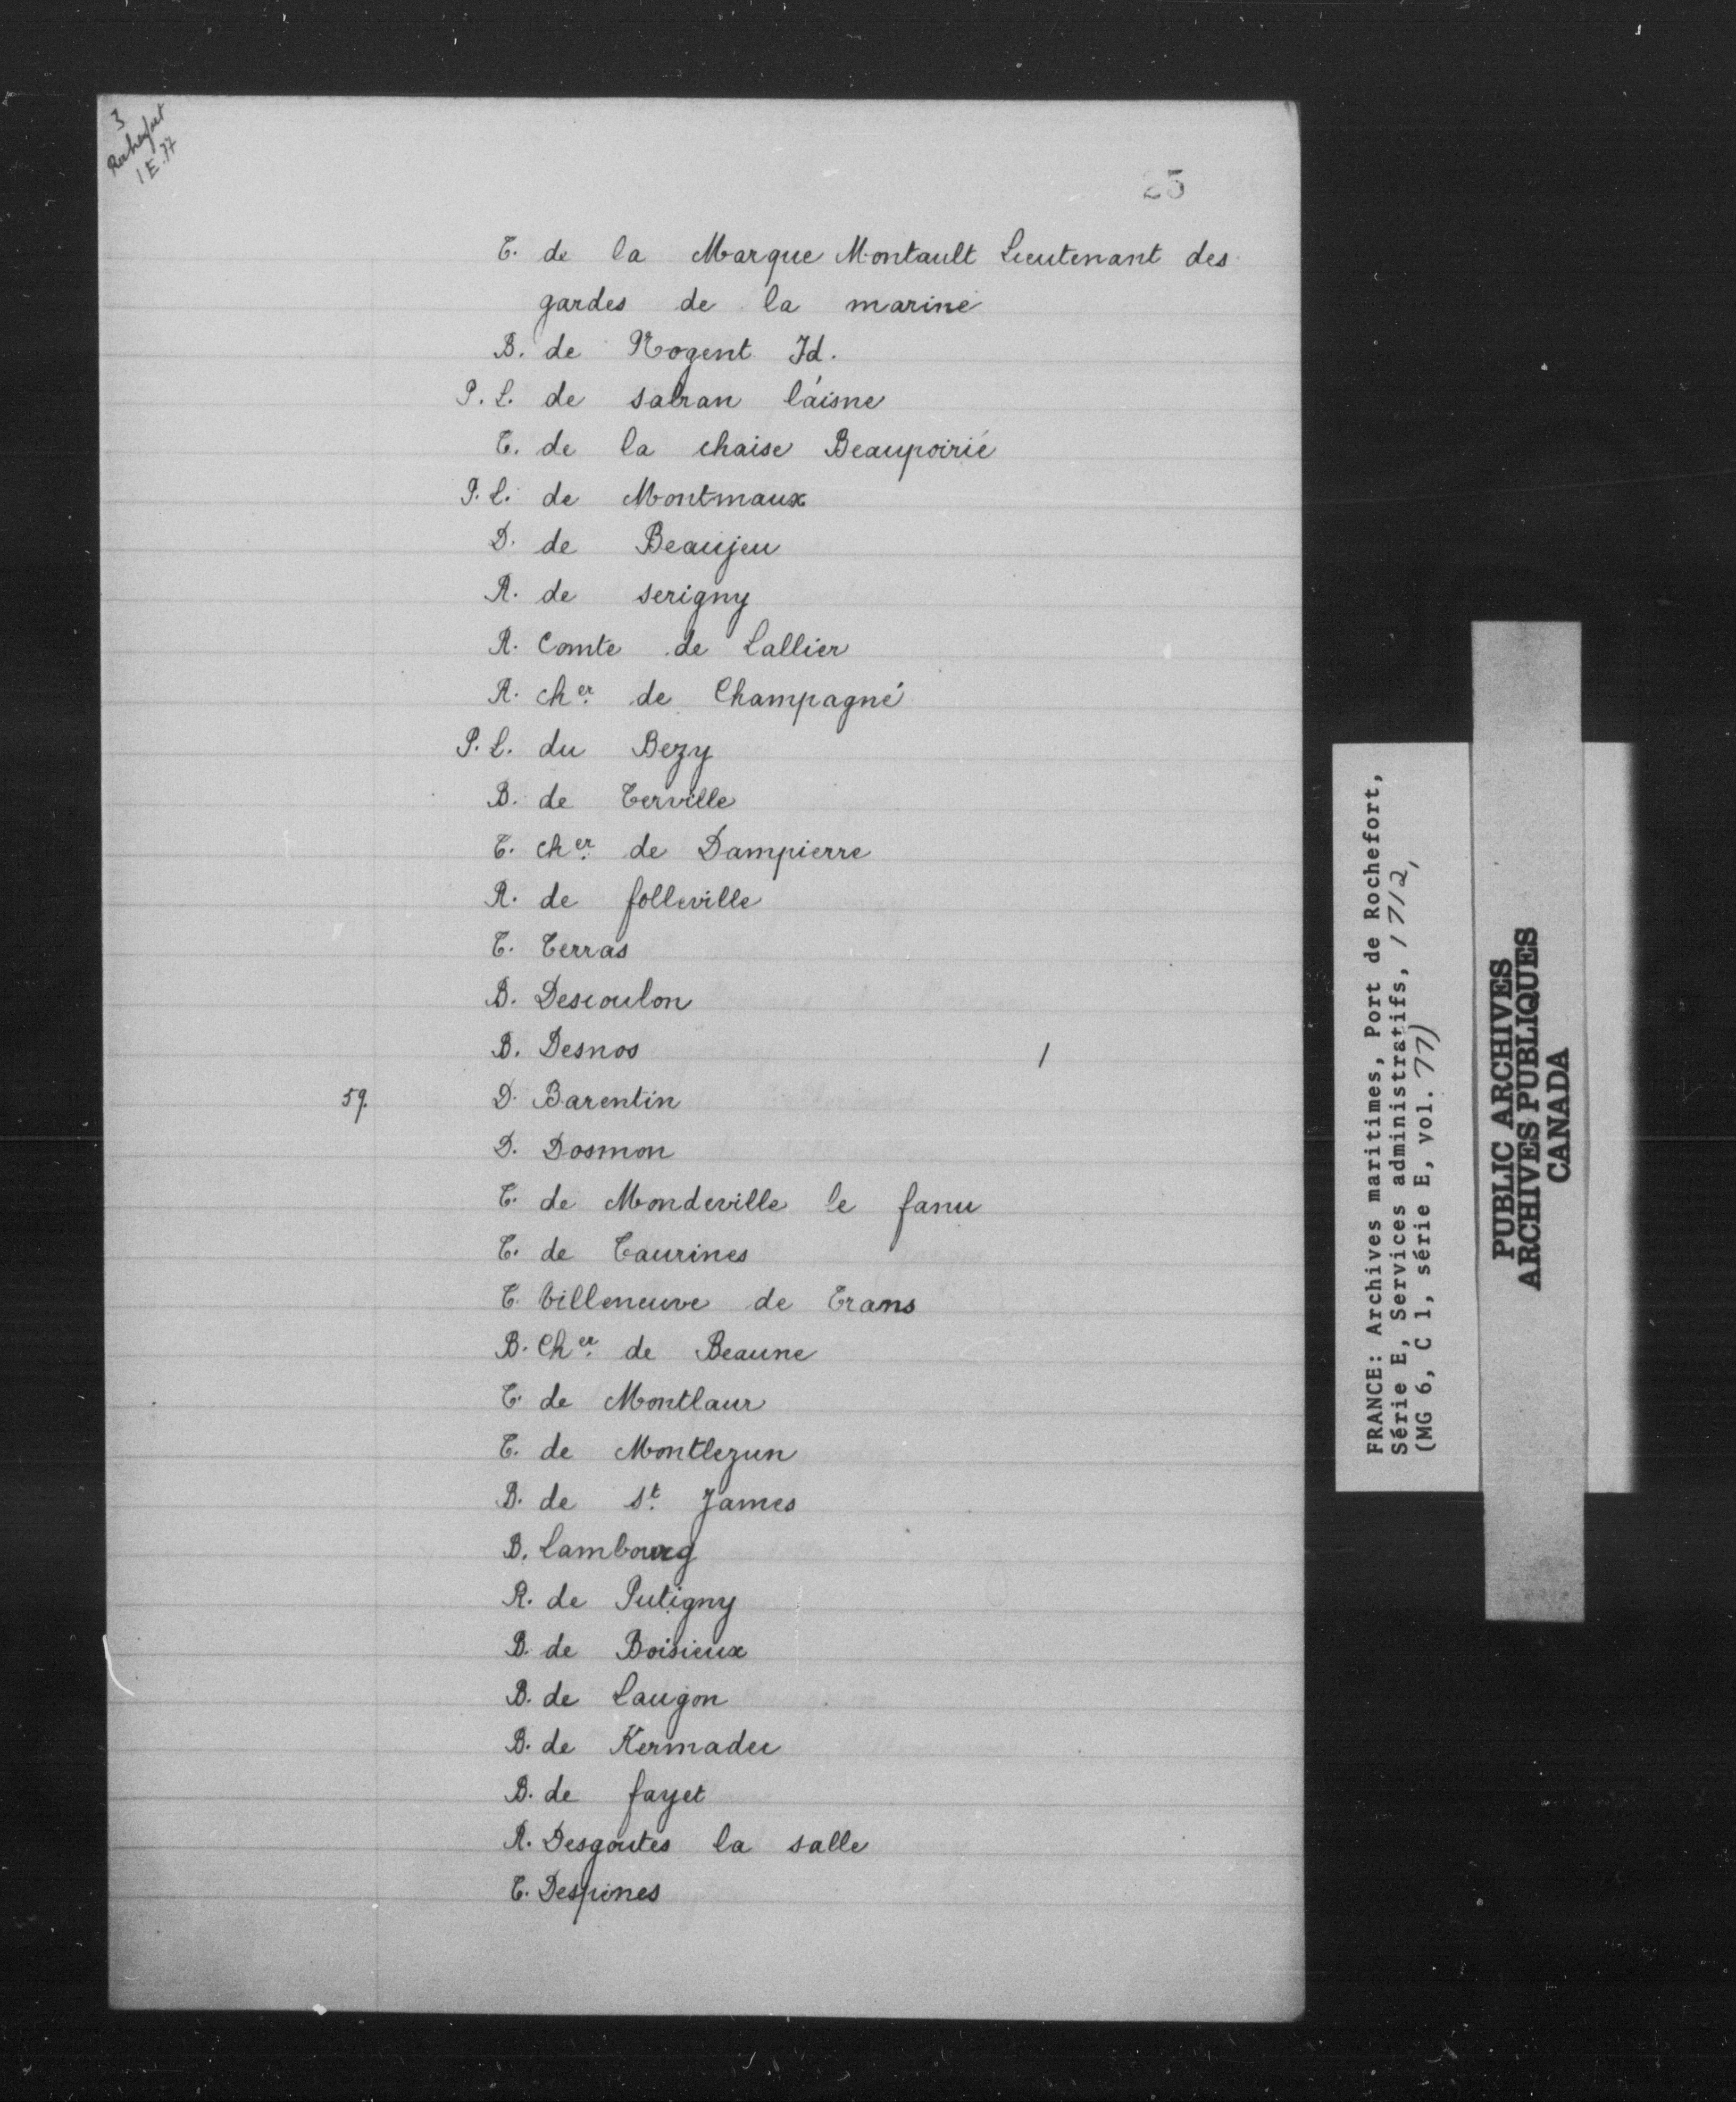 3
Rochefort
1 E. 77
25
T. de la Marque Montault Lieutenant des
gardes de la marine
B. de Nogent Id.
P. L. de sabran l'aisne
T. de la chaise Beaupoirié
P. L. de Montmaux
D. de Beaujeu
R. de serigny
R. Comte de Lallier
R. cher. de Champagné
P. L. du Bezy
B. de Terville
T. cher. de Dampierre
R. de folleville
T. Terras
B. Descoulon
B. Desnos /
59. D. Barentin
D. Dosmon
T. de Mondeville le fanu
T. de Taurines
T. Villeneuve de Trans
B. Cher. de Beaune
T. de Montlaur
T. de Montlezun
B. de St. James
B. Lambourg
R. de Putigny
B. de Boisieux
B. de Laugon
B. de Kermadec
B. de fayet
R. Desgoutes la salle
T. Despines
FRANCE: Archives maritimes, Port de Rochefort,
Série E, Services administratifs, 1712,
(MG 6, C 1, série E, vol. 77)
PUBLIC ARCHIVES
ARCHIVES PUBLIQUES
CANADA